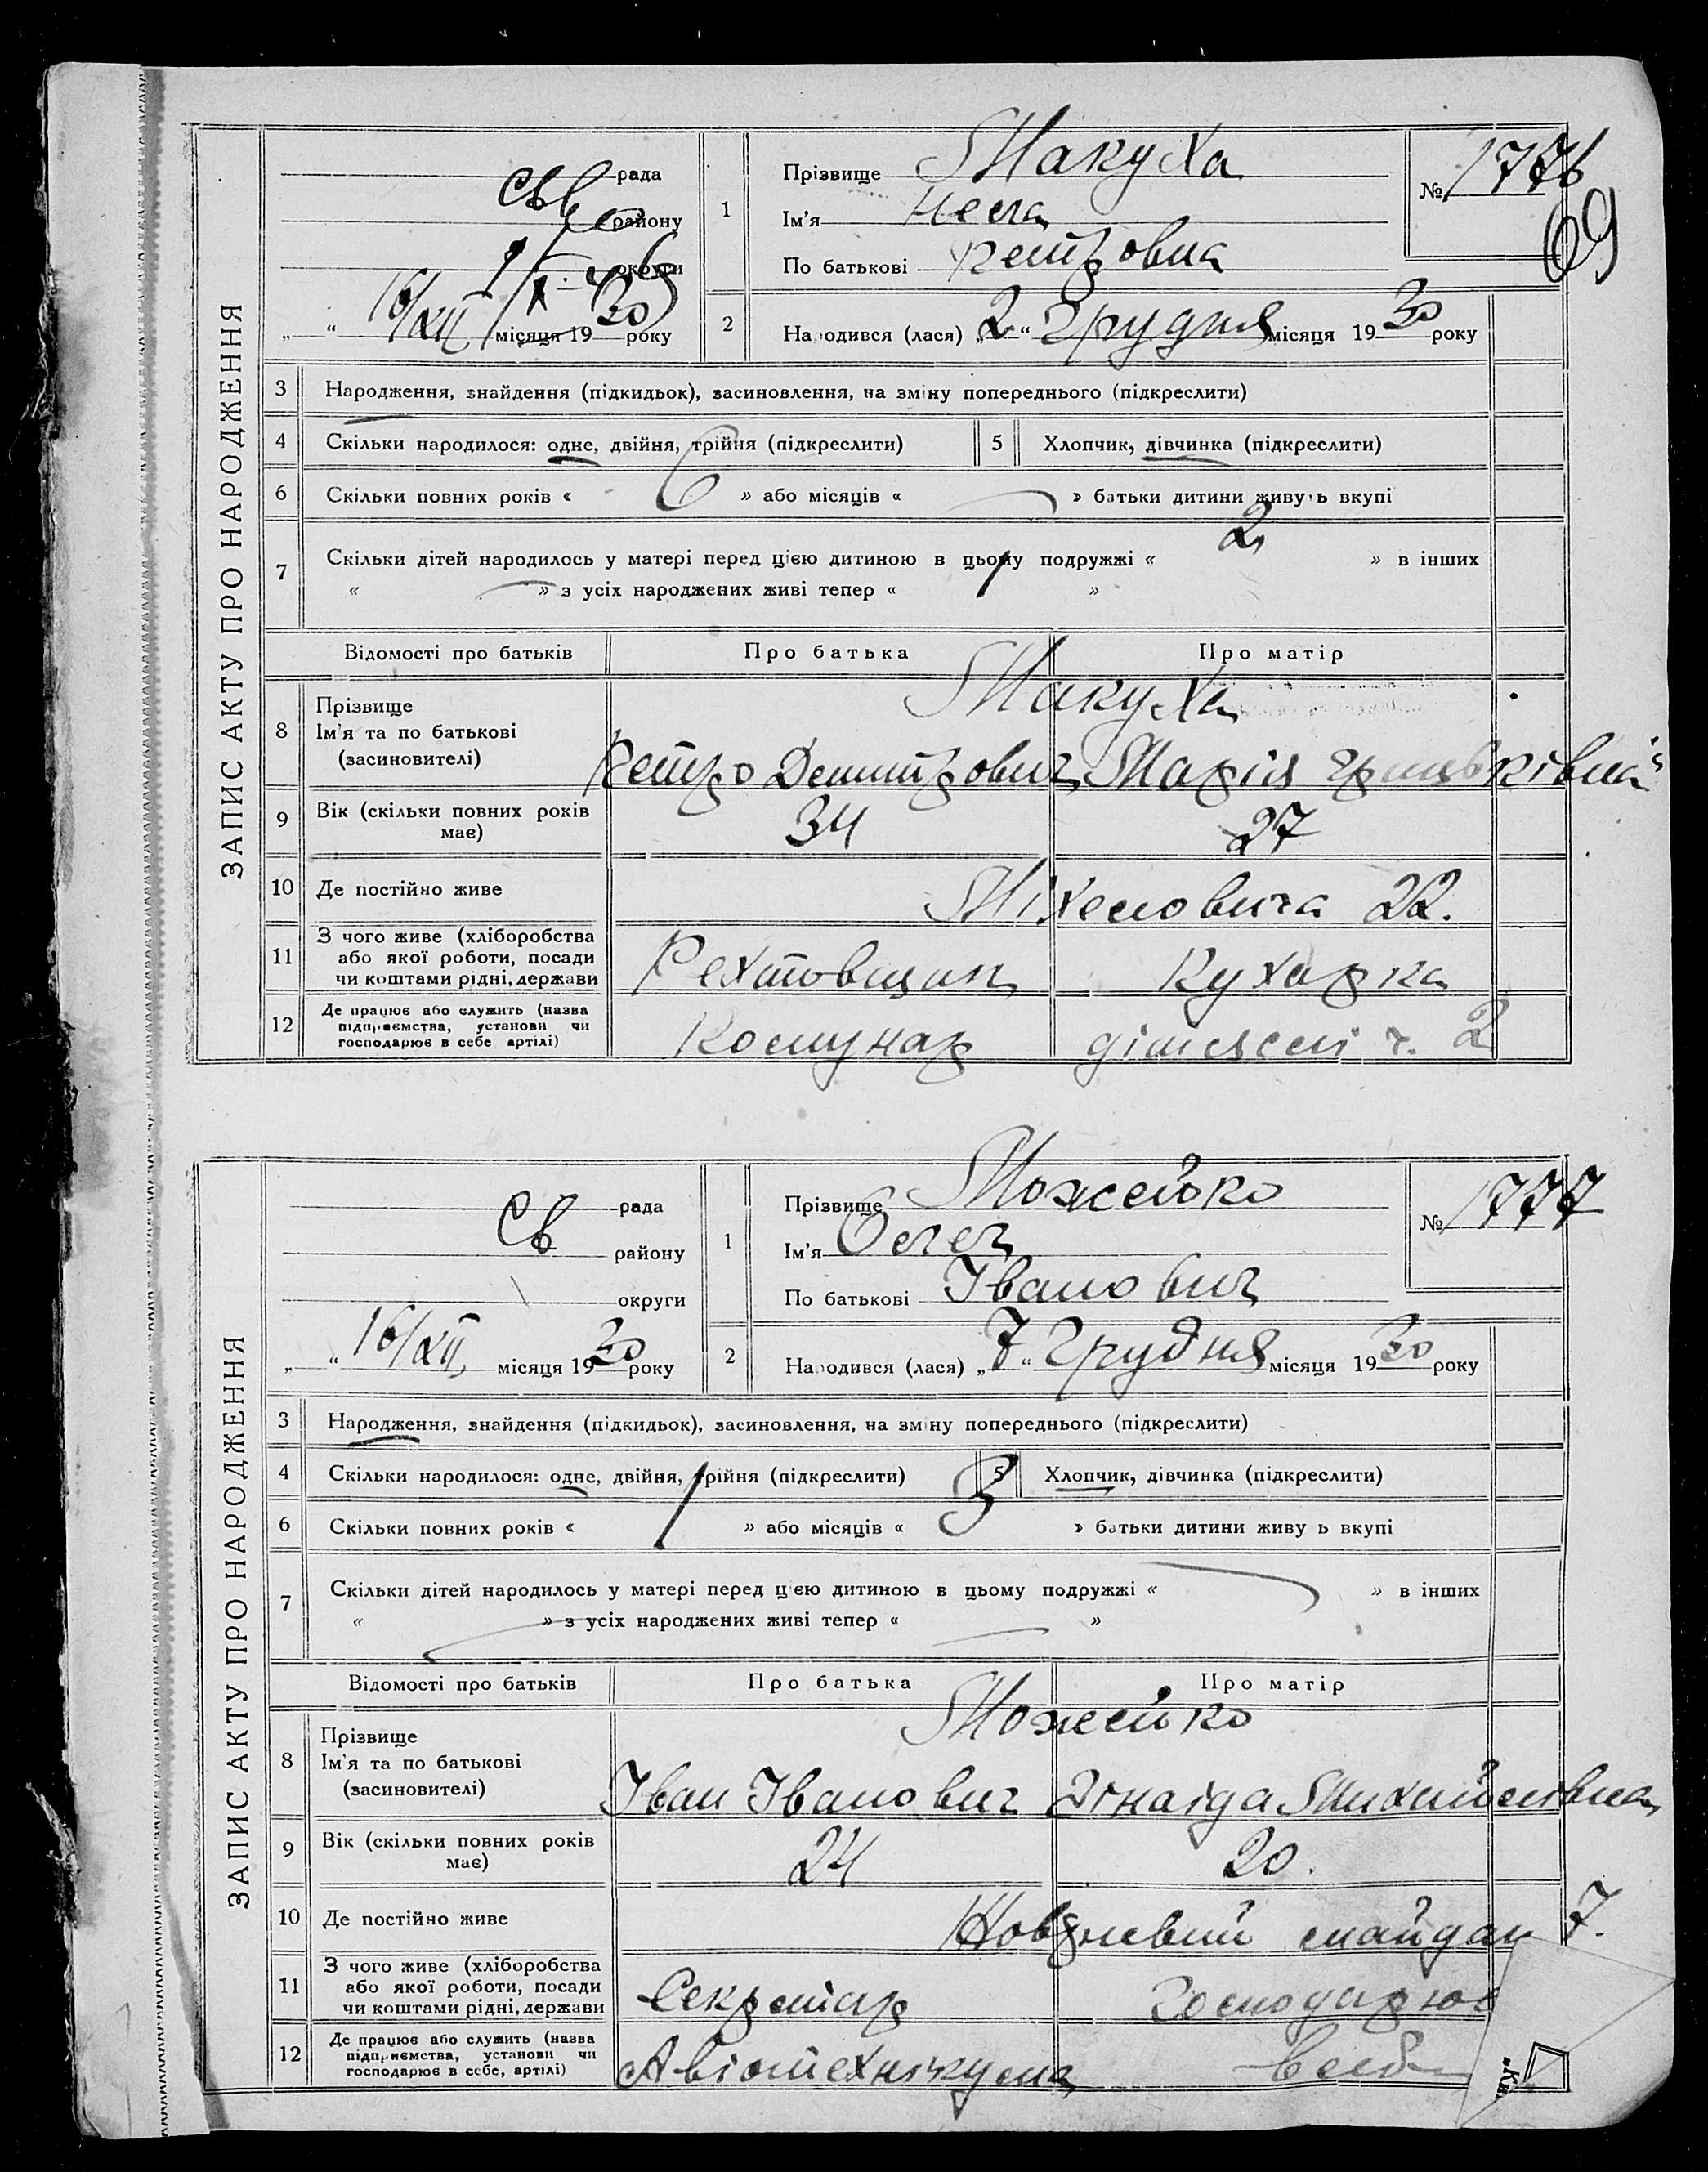 ЗАПИС АКТУ ПРО НАРОДЖЕННЯ
рада
району
округи
„ “ 16/XII місяця 1930 року
1 Прізвище Макуха
Ім'я Нела
По батькові Петровна
№ 1776
69
2 Народився (лася) „2“ Грудня місяця 1930 року
3 Народження, знайдення (підкидьок), засиновлення, на зміну попереднього (підкреслити)
4 Скільки народилося: одне, двійня, трійня (підкреслити) 5 Хлопчик, дівчинка (підкреслити)
6 Скільки повних років « 6 » або місяців « » батьки дитини живуть вкупі
7 Скільки дітей народилось у матері перед цією дитиною в цьому подружжі « 2 » в інших
« » з усіх народжених живі тепер « 1 »
Відомості про батьків Про батька Про матір
8 Прізвище Макуха
Ім'я та по батькові
(засиновителі) Петро Дмитрович Марія Грицьківна
9 Вік (скільки повних років має) 34 27
10 Де постійно живе 22.
11 З чого живе (хліборобства
або якої роботи, посади
чи коштами рідні, держави Рехтовщик Кухарка
12 Де працює або служить (назва
підприємства, установи чи
господарює в себе артілі) Комунар 2
ЗАПИС АКТУ ПРО НАРОДЖЕННЯ
Св рада
району
округи
„ “ 16/XII місяця 1930 року
1 Прізвище Можейко
Ім'я Олег
По батькові Іванович
№ 1777
2 Народився (лася) „7“ Грудня місяця 1930 року
3 Народження, знайдення (підкидьок), засиновлення, на зміну попереднього (підкреслити)
4 Скільки народилося: одне, двійня, трійня (підкреслити) 5 Хлопчик, дівчинка (підкреслити)
6 Скільки повних років « 1 » або місяців « 3 » батьки дитини живуть вкупі
7 Скільки дітей народилось у матері перед цією дитиною в цьому подружжі « » в інших
« » з усіх народжених живі тепер « »
Відомості про батьків Про батька Про матір
8 Прізвище Можейко
Ім'я та по батькові
(засиновителі) Іван Іванович Зінаіда Михайлівна
9 Вік (скільки повних років має) 24 20.
10 Де постійно живе Жовтневий майдан 7.
11 З чого живе (хліборобства
або якої роботи, посади
чи коштами рідні, держави Секретар Господарює
12 Де працює або служить (назва
підприємства, установи чи
господарює в себе, артілі) Авіотехнікума в себе
„Ки